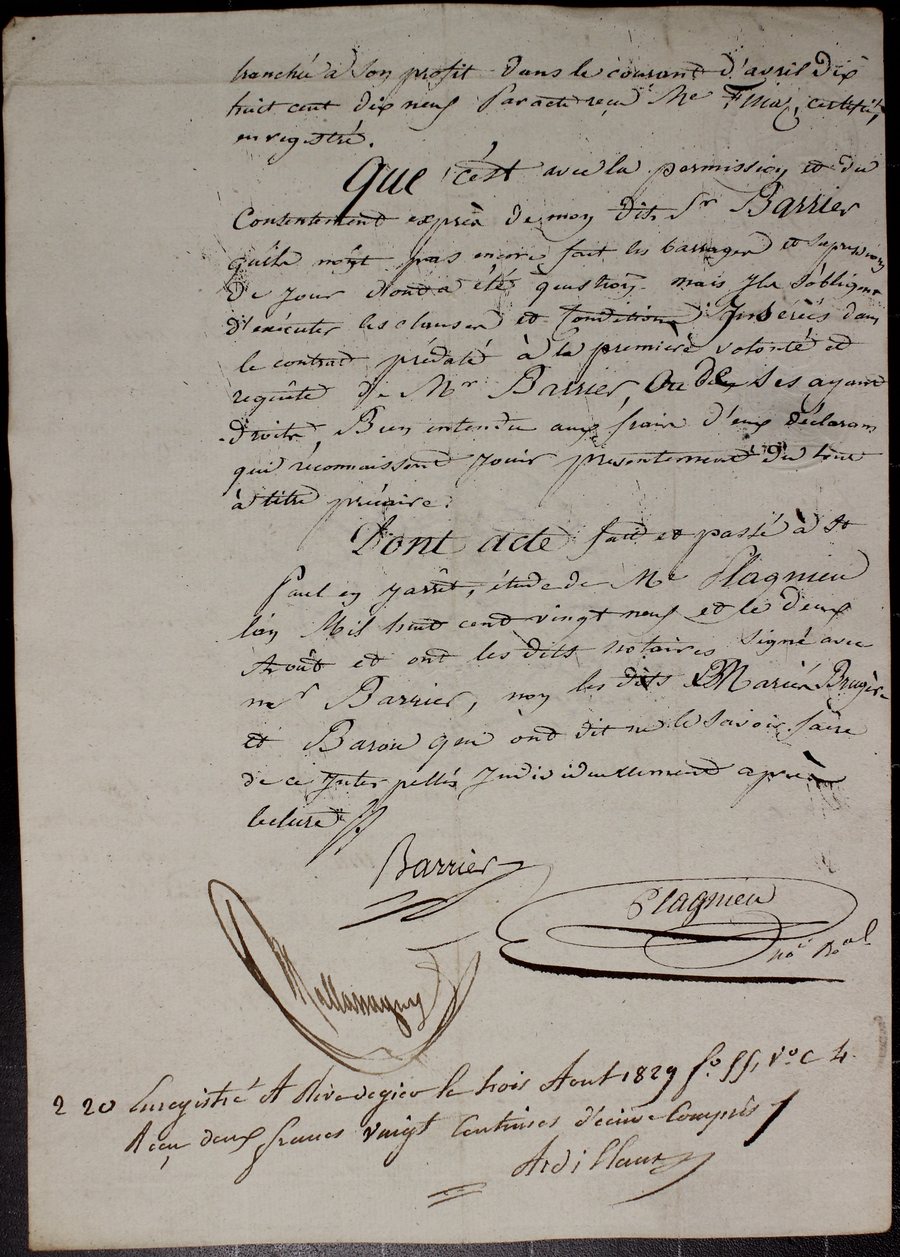 tranchée à son profit dans le courant d'avril dix
huit cent dix neuf par acte reçu Me certifié,
enregistré.
Que c'est avec la permission et du
Consentement exprès de mon dit Sr Barrier
qu'ils n'ont pas encore fait les barrages et
De jour dont a été question mais ils s'obligent
d'exécuter les clauses et Conditions Insérés dans
le contrat prédaté à la première volonté et
requête de Mr Barrier, Ou de ses ayant
droits, Bien entendu aux frais d'eux déclarans
qui réconnaissent jouir présentement du tout
à titre précaire.
Dont acte fait et passé à St
Paul en jarrêt, étude de Me Plagnieu
l'an Mil huit cent vingt neuf et le deux
Août et ont les dits notaires signé avec
mr Barrier, non les dits Marien Brugère
et Barou qui ont dit ne le savoir faire
de ce Interpellés Individuellement après
lecture
Barrier
Plagnieu
nore Roal
Mallassagny
2 20 Enregistré A Rivedegier le trois Aout 1829 fo 55, vo c 4.
Reçu deux francs vingt Centimes décime Compris
Ardillaux